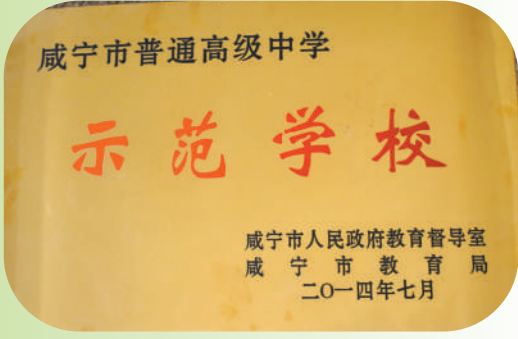 咸宁市普通高级中学
示范学校
咸宁市人民政府教育督导室
咸宁市教育局
二〇一四年七月